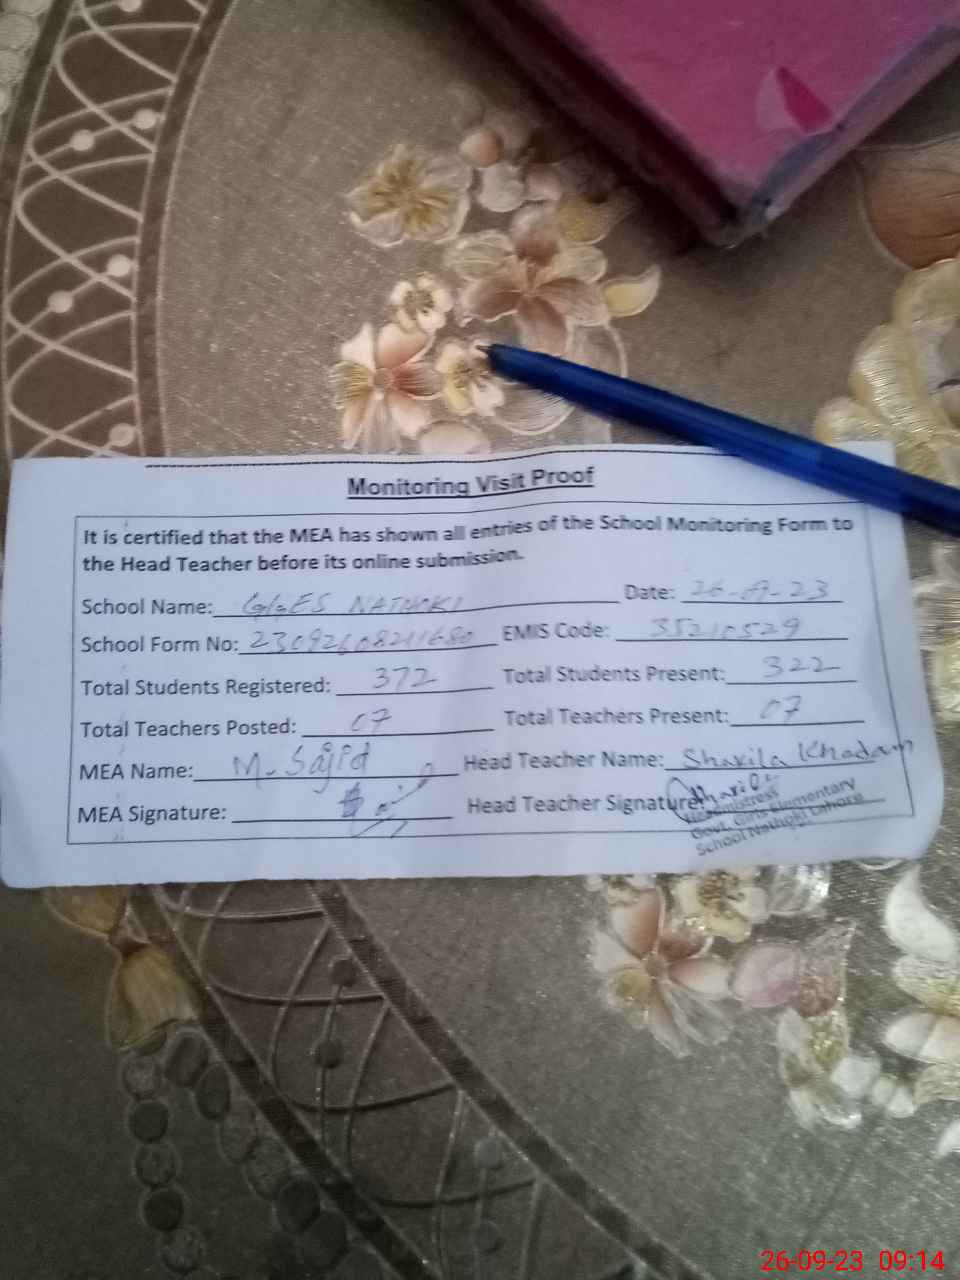 Monitoring Visit Proof
It is certified that the MEA has shown all entries of the School Monitoring Form to
the Head Teacher before its online submission.
School Name: GGES NATHOKI Date: 26-09-23
School Form No: EMIS Code: 35210529
Total Students Registered: 372 Total Students Present: 322
Total Teachers Posted: 07 Total Teachers Present: 07
MEA Name: M. Sajid Head Teacher Name: Shakila Khadam
MEA Signature: Head Teacher Signature:
Headmistress
Govt. Girls Elementary
School Nathoki Lahore
26-09-23 09:14